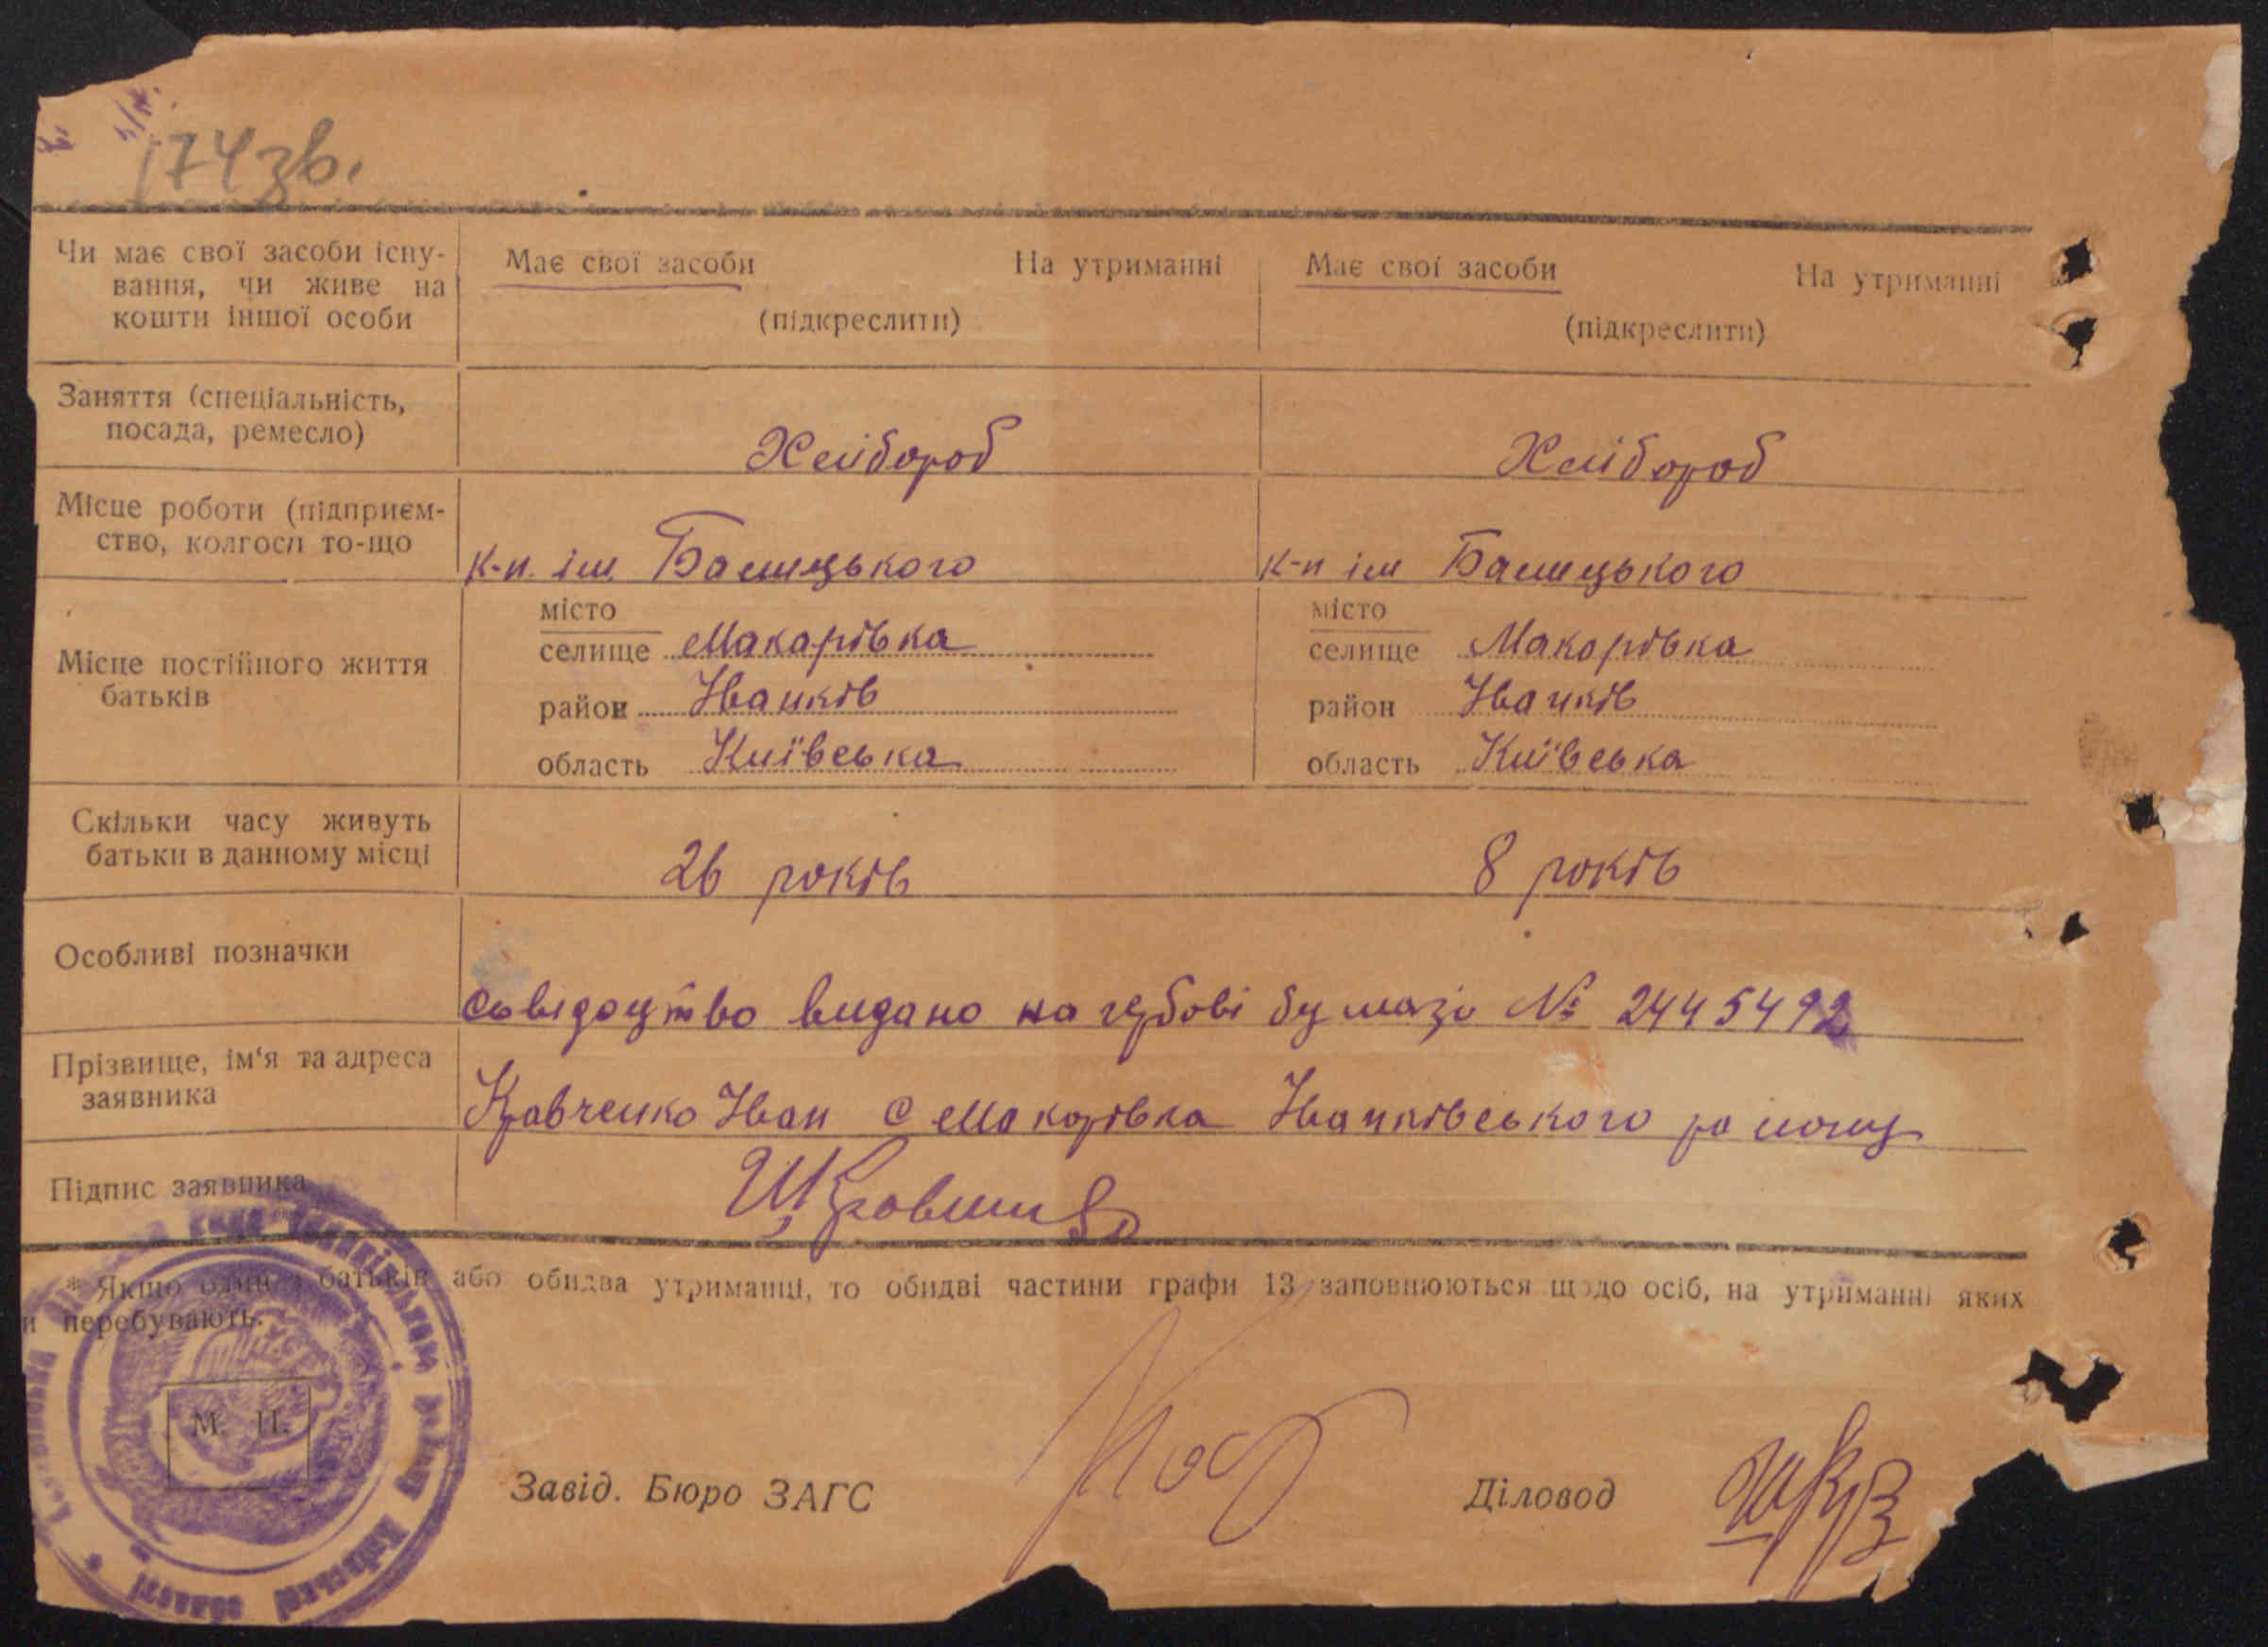 174 зв.
Чи має свої засоби існу-
вання, чи живе на
кошти іншої особи
Має свої засоби На утриманні
(підкреслити)
Має свої засоби На утриманні
(підкреслити)
Заняття (спеціальність,
посада, ремесло)
Хлібороб
Хлібороб
Місце роботи (підприєм-
ство, колгосп то-що
к-п. ім
к-п ім
Місце постійного життя
батьків
місто
селище Макарівка
район Іванків
область Київська
місто
селище Макарівка
район Іванків
область Київська
Скільки часу живуть
батьки в данному місці
26 років
8 років
Особливі позначки
видано на бумазі № 2445492
Прізвище, ім'я та адреса
заявника
Кравченко Іван с Макарівка Іванківського району
Підпис заявника
* Якщо один з батьків або обидва утриманці, то обидві частини графи 13 заповнюються щодо осіб, на утриманні яких
и перебувають.
М. П.
Завід. Бюро ЗАГС
Діловод
району Київської області